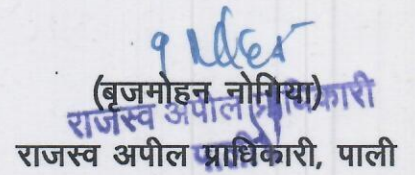 (बृजमोहन नोगिया)
राजस्व अपील प्राधिकारी
पाली
राजस्व अपील प्राधिकारी, पाली